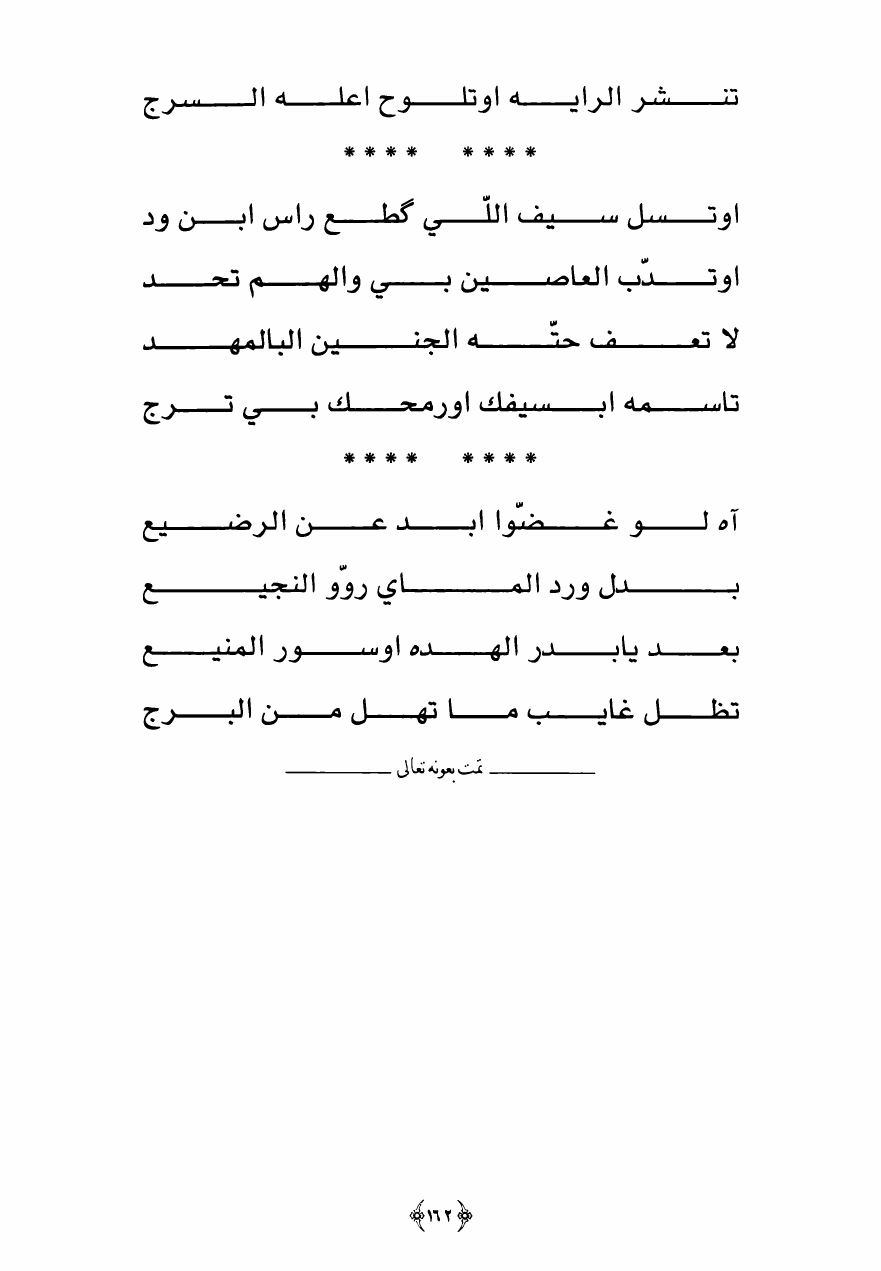 تنشر الرايه اوتلوح اعله السرج
**** ****
اوتسل سيف اللّي گطع راس ابن ود
اوتدّب العاصين بي والهم تحد
لا تعف حتّه الجنين البالمهد
تاسمه ابسيفك اورمحك بي ترج
**** ****
آه لو غضّوا ابد عن الرضيع
بدل ورد الماي روّو النجيع
بعد يابدر الهده اوسور المنيع
تظل غايب ما تهل من البرج
تمّت بعونه تعالى
﴿١٦٢﴾